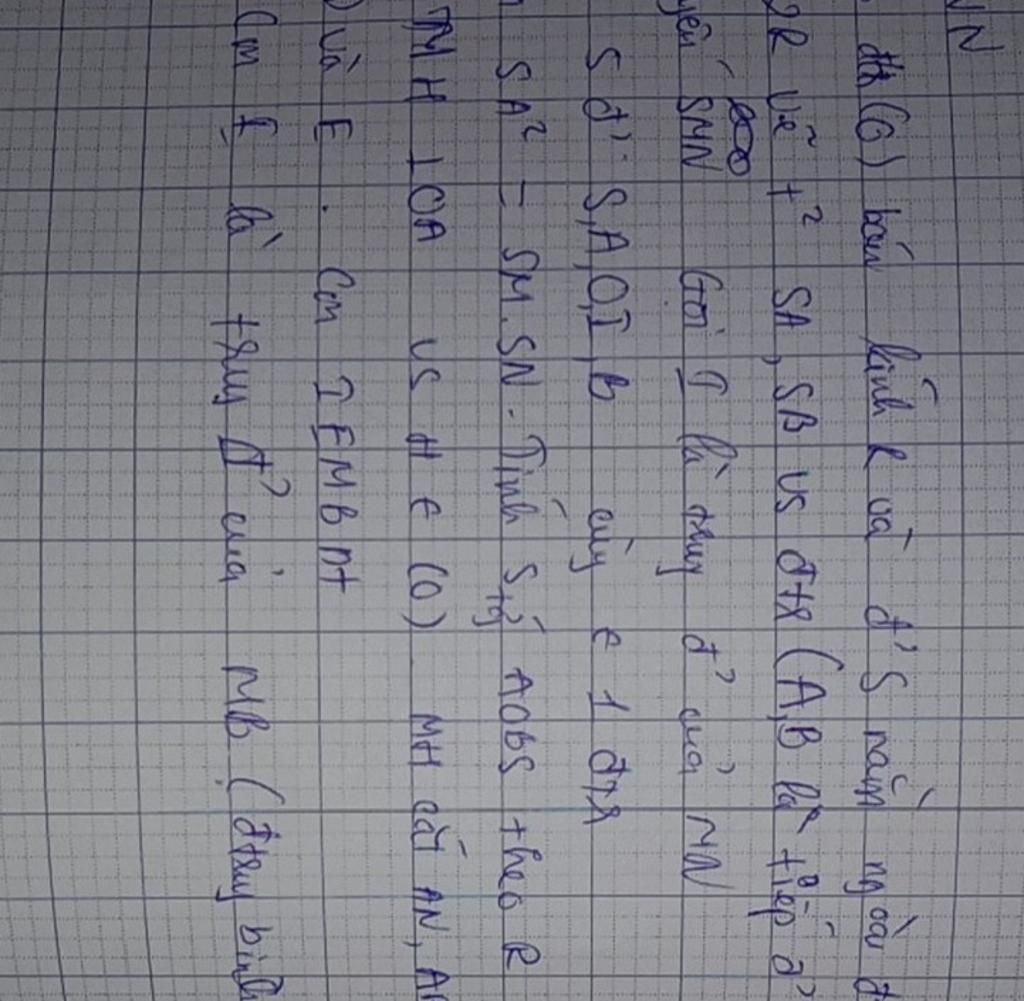 N
đtr (O) bán kính R và đ' S nằm ngoài đ
2R vẽ t² SA, SB vs đtr (A, B là tiếp đ'
yến SMN Gọi I là trug đ' của MN
S đ' S, A, O, I, B cùg ∈ 1 đtr
SA² = SM.SN. Tính S tg AOBS theo R
MH ⊥ OA vs H ∈ (O) MH cắt AN, A
và E. Cm IEMB nt
Cm E là trug đ' của MB (đtrug bình